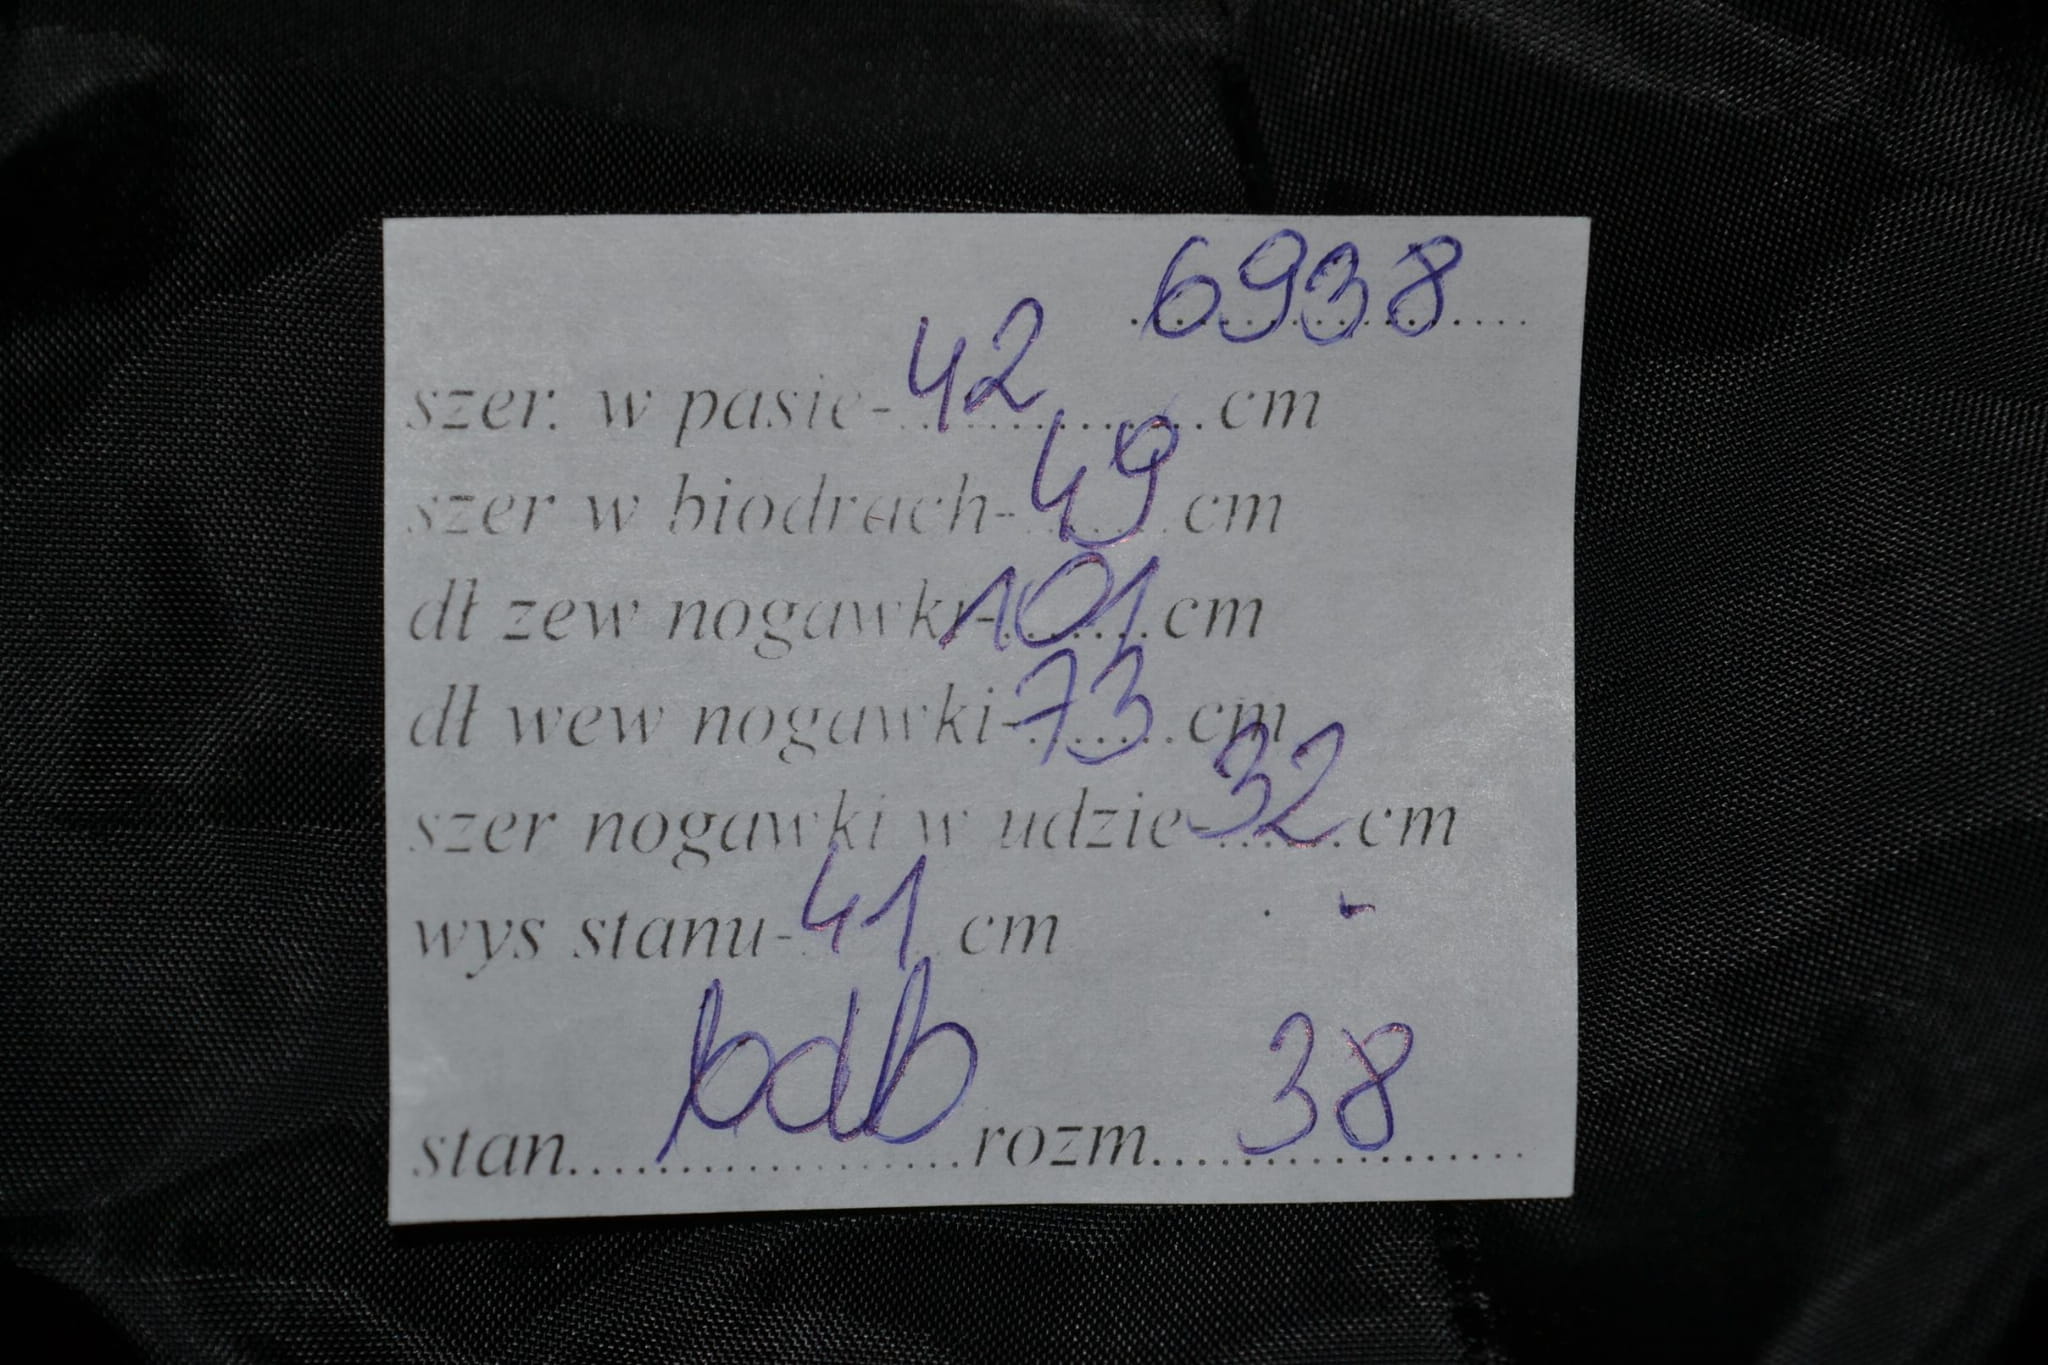 6938
szer. w pasie- 42 cm
szer w biodrach- 49 cm
dł zew nogawki- 101 cm
dł wew nogawki- 73 cm
szer nogawki w udzie- 32 cm
wys stanu- 41 cm
stan bdb rozm 38